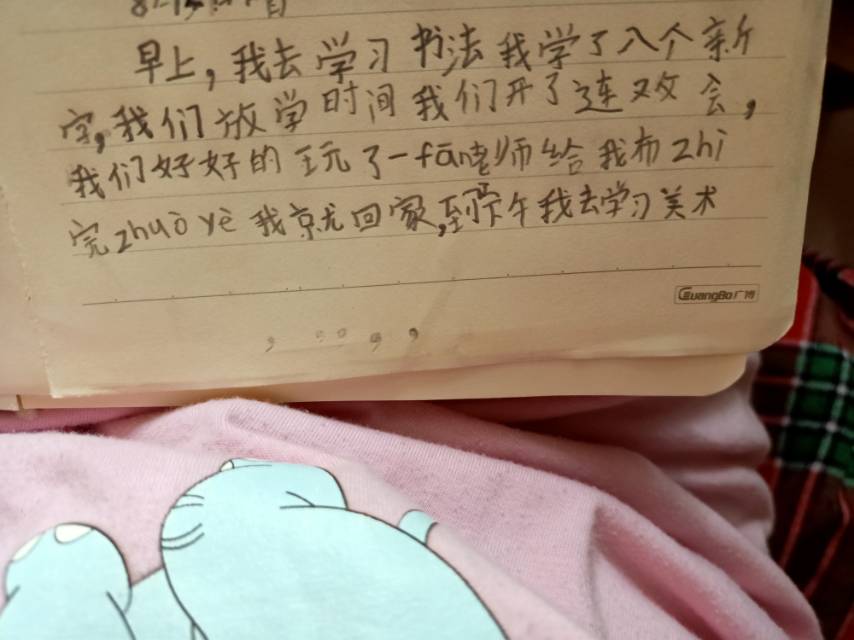 早上，我去学习书法我学了八个新
字，我们放学时间我们开了连欢会，
我们好好的玩了一fān老师给我布zhì
完zhuò yè我京尤回家，到下午我去学习美术
GuangBo广博